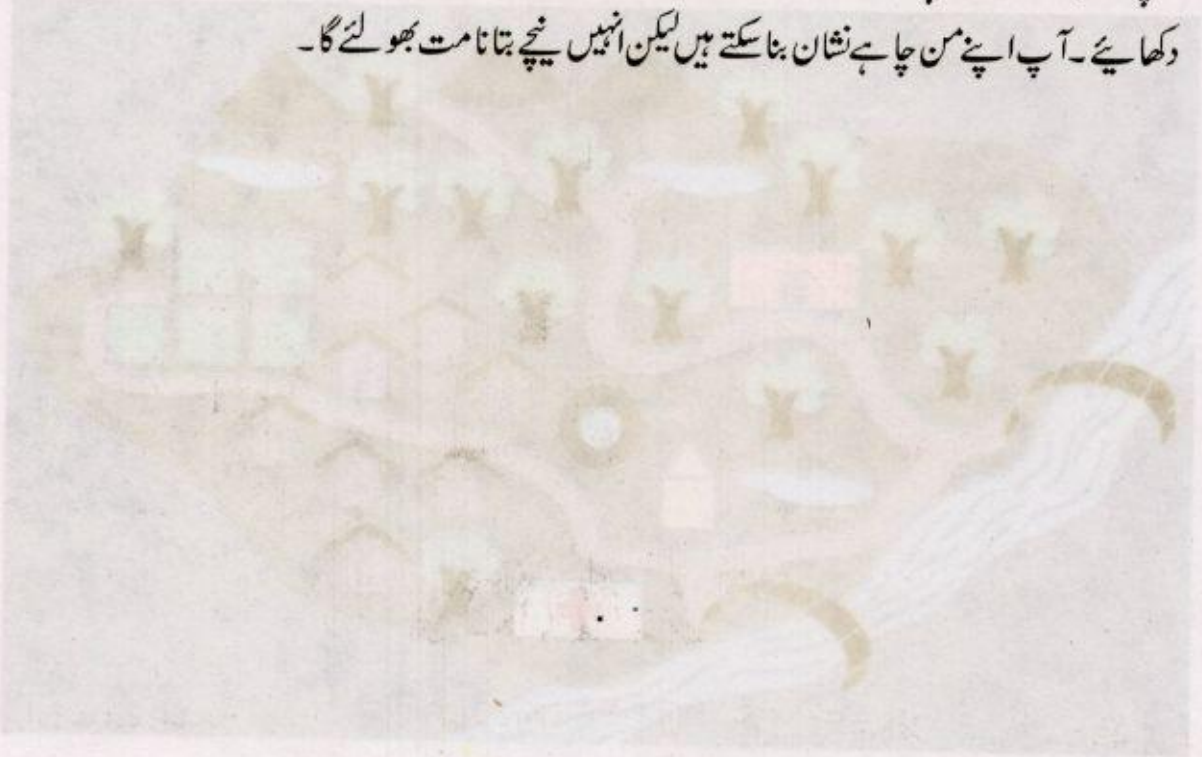 دکھائیے۔ آپ اپنے من چاہے نشان بنا سکتے ہیں لیکن انہیں نیچے بتانا مت بھولئے گا۔